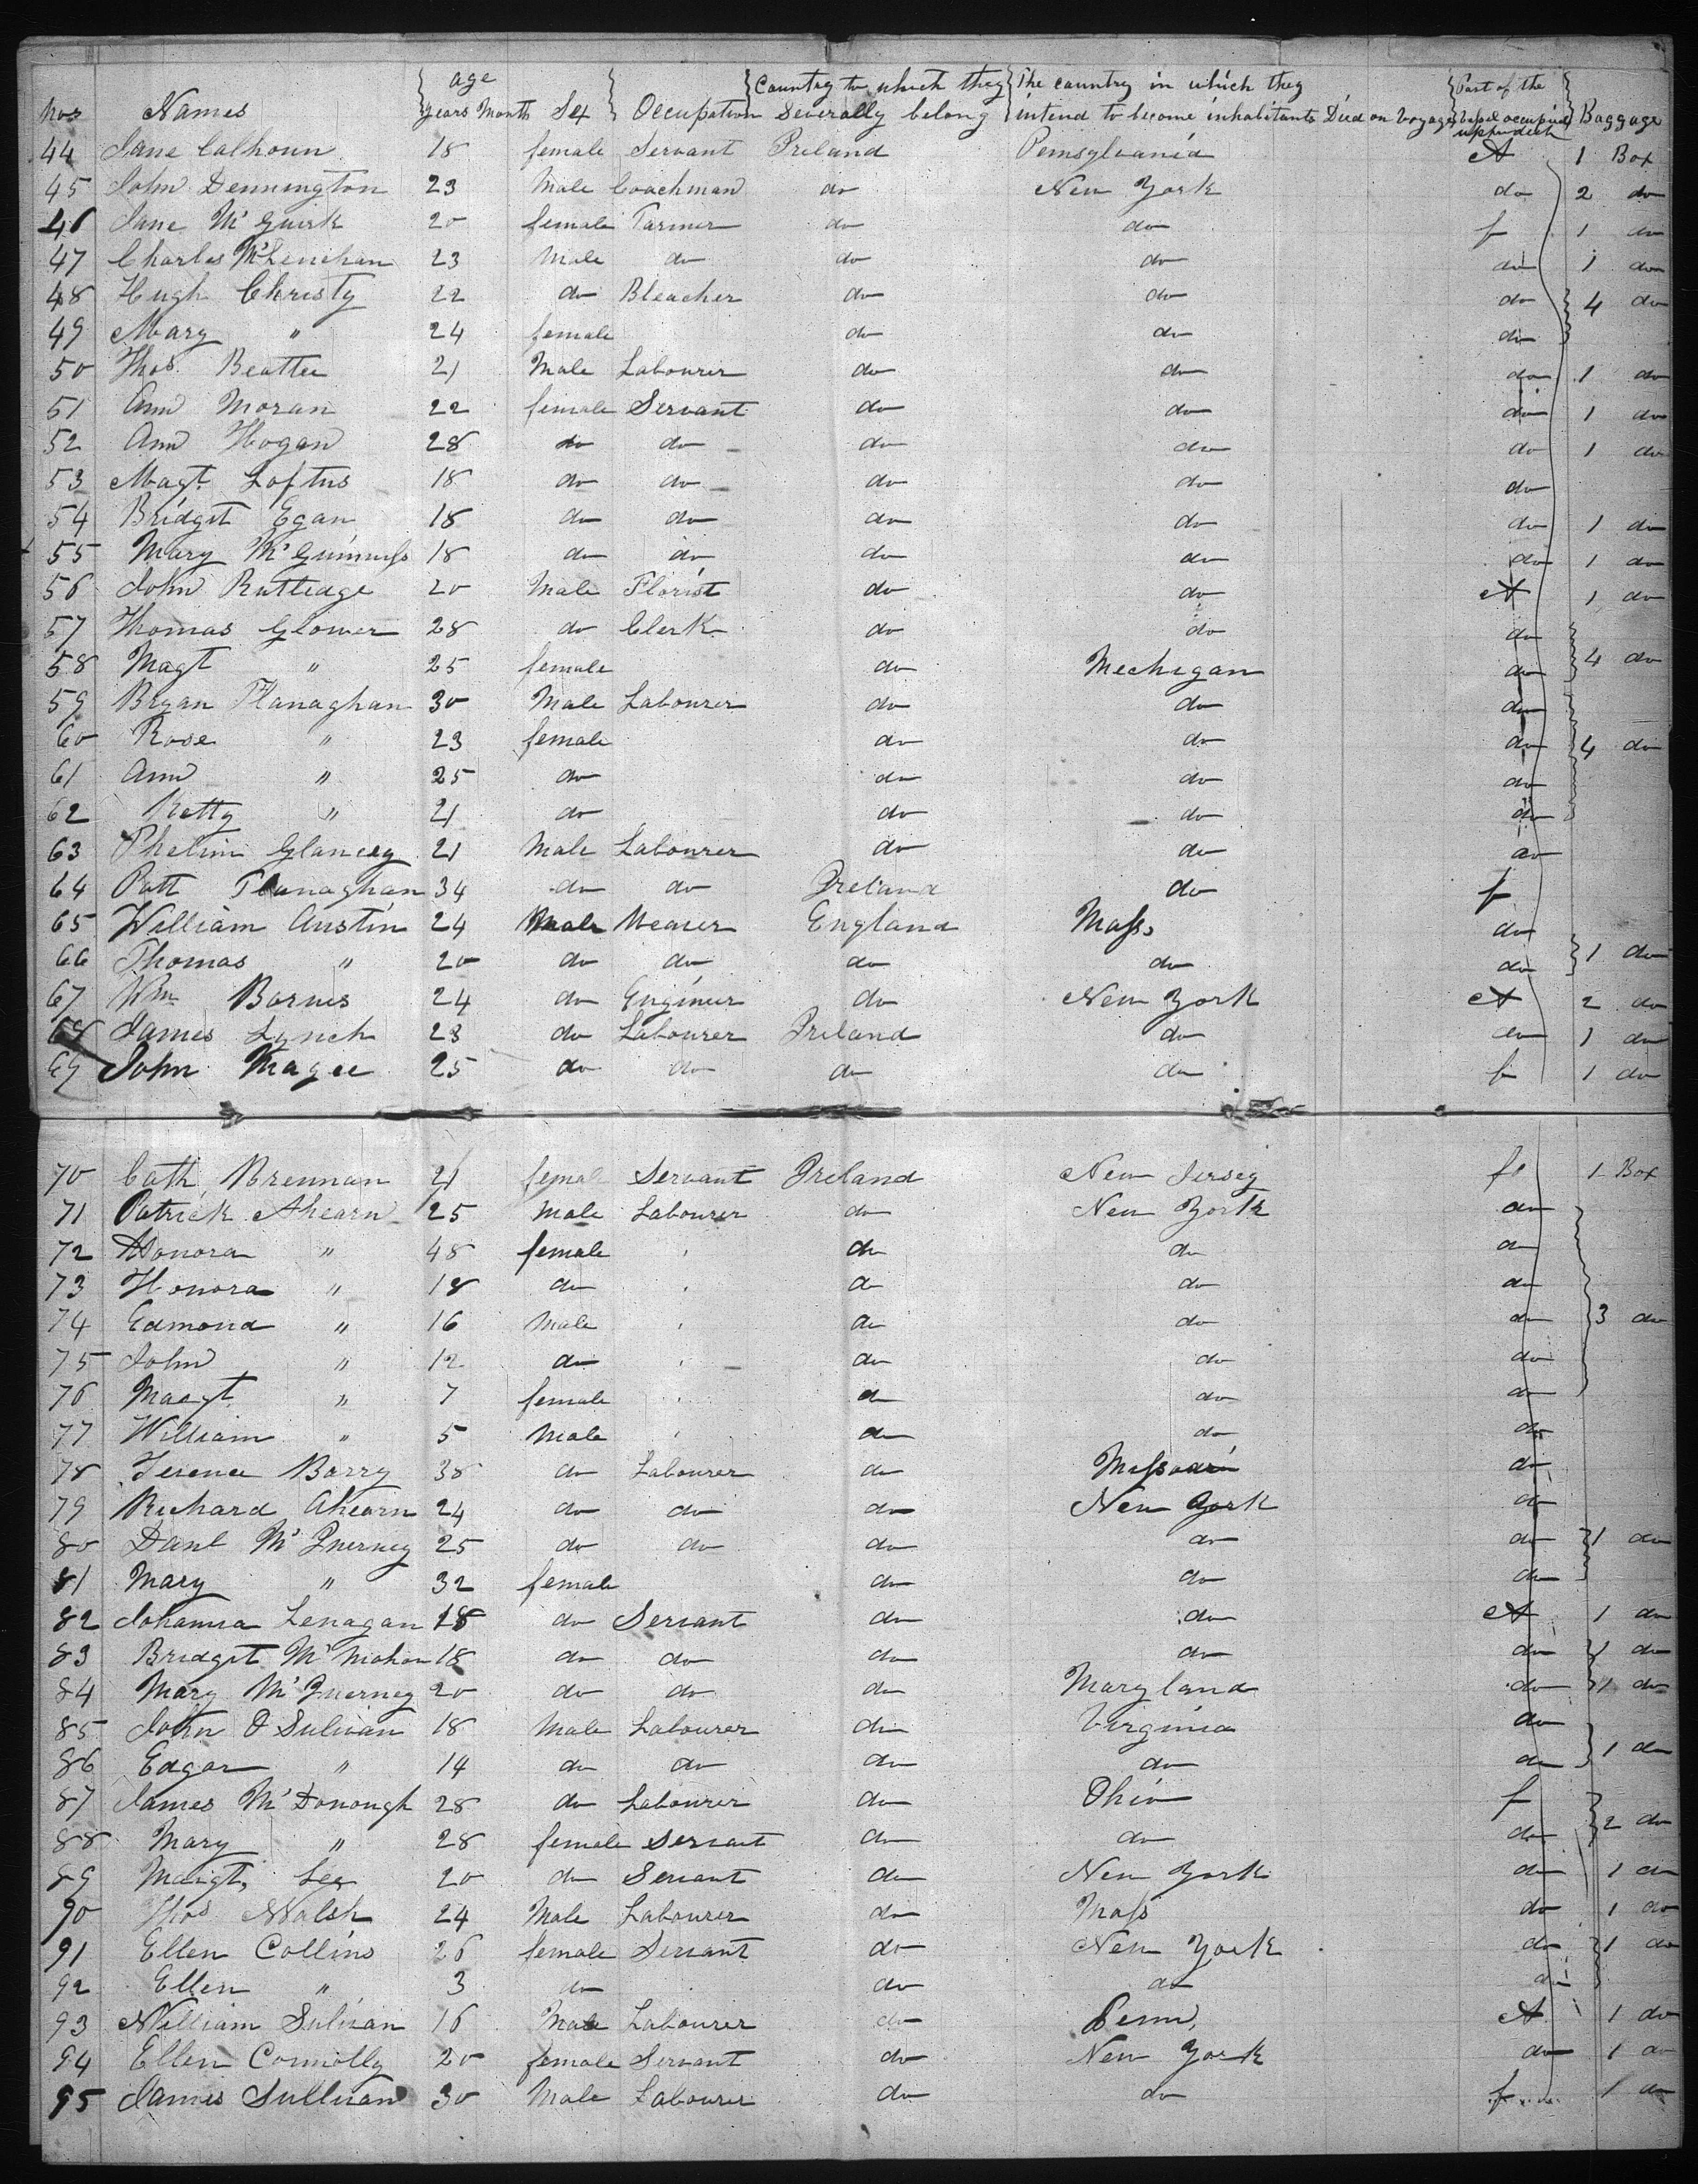 Nos Names age years Month Sex Occupation Country to which they Severally belong The country in which they intend to become inhabitants Died on Voyage Part of the Vessel occupied upper deck Baggage
44 Jane Calhoun 18 female Servant Ireland Pennsylvania A 1 Box
45 John Dennington 23 Male Coachman do New York do 2 do
46 Jane McGuirk 20 female Farmer do do f 1 do
47 Charles McLenehan 23 Male do do do do 1 do
48 Hugh Christy 22 do Bleacher do do do 4 do
49 Mary " 24 female do do do
50 Thos. Beattee 21 Male Labourer do do do 1 do
51 Ann Moran 22 female Servant do do do 1 do
52 Ann Hogan 28 do do do do do 1 do
53 Magt. Loftus 18 do do do do do
54 Bridget Egan 18 do do do do do 1 do
55 Mary McGuinness 18 do do do do do 1 do
56 John Rutledge 20 Male Florist do do A 1 do
57 Thomas Glower 28 do Clerk do do do
58 Magt " 25 female do Mechigan do 4 do
59 Bryan Flanaghan 30 Male Labourer do do do
60 Rose " 23 female do do do 4 do
61 Ann " 25 do do do do
62 " 21 do do do do
63 Phelim Glancey 21 Male Labourer do do do
64 Patt Flanaghan 34 do do Ireland do f
65 William Austin 24 Male Weaver England Mass. do
66 Thomas " 20 do do do do do 1 do
67 Wm Barnes 24 do Engineer do New York A 2 do
68 James Lynch 23 do Labourer Ireland do do 1 do
69 John Magee 25 do do do do f 1 do
70 Cath. Brennan 21 femal Servant Ireland New Jersey f 1 Box
71 Patrick Ahearn 25 Male Labourer do New York do
72 Honora " 48 female do do do
73 Honora " 18 do do do do
74 Edmond " 16 Male do do do 3 do
75 John " 12 do do do do
76 Maegt. " 7 female do do do
77 William " 5 Male do do do
78 Terence Barry 38 do Labourer do Missouri do
79 Richard Ahearn 24 do do do New York do
80 Danl McInerney 25 do do do do do 1 do
81 Mary " 32 female do do do
82 Johanna Lenagan 18 do Servant do do A 1 do
83 Bridget McMahon 18 do do do do do 1 do
84 Mary McInerney 20 do do do Maryland do 1 do
85 John O Sulivan 18 Male Labourer do Virginia do
86 Edgar " 14 do do do do do 1 do
87 James McDonough 28 do Labourer do Ohio f
88 Mary " 28 female Servant do do do 2 do
89 Maigt. Lee 20 do Servant do New York do 1 do
90 Thos Walsh 24 Male Labourer do Mass do 1 do
91 Ellen Collins 26 female Servant do New York do 1 do
92 Ellen " 3 do do do do
93 William Sulivan 16 Male Labourer do Penn. A 1 do
94 Ellen Connolly 20 female Servant do New York do 1 do
95 James Sullivan 30 Male Labourer do do f 1 do